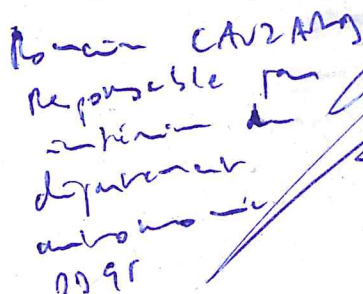 Romain CAUZARD
Responsable par
intérim du
département
autonomie
DD95